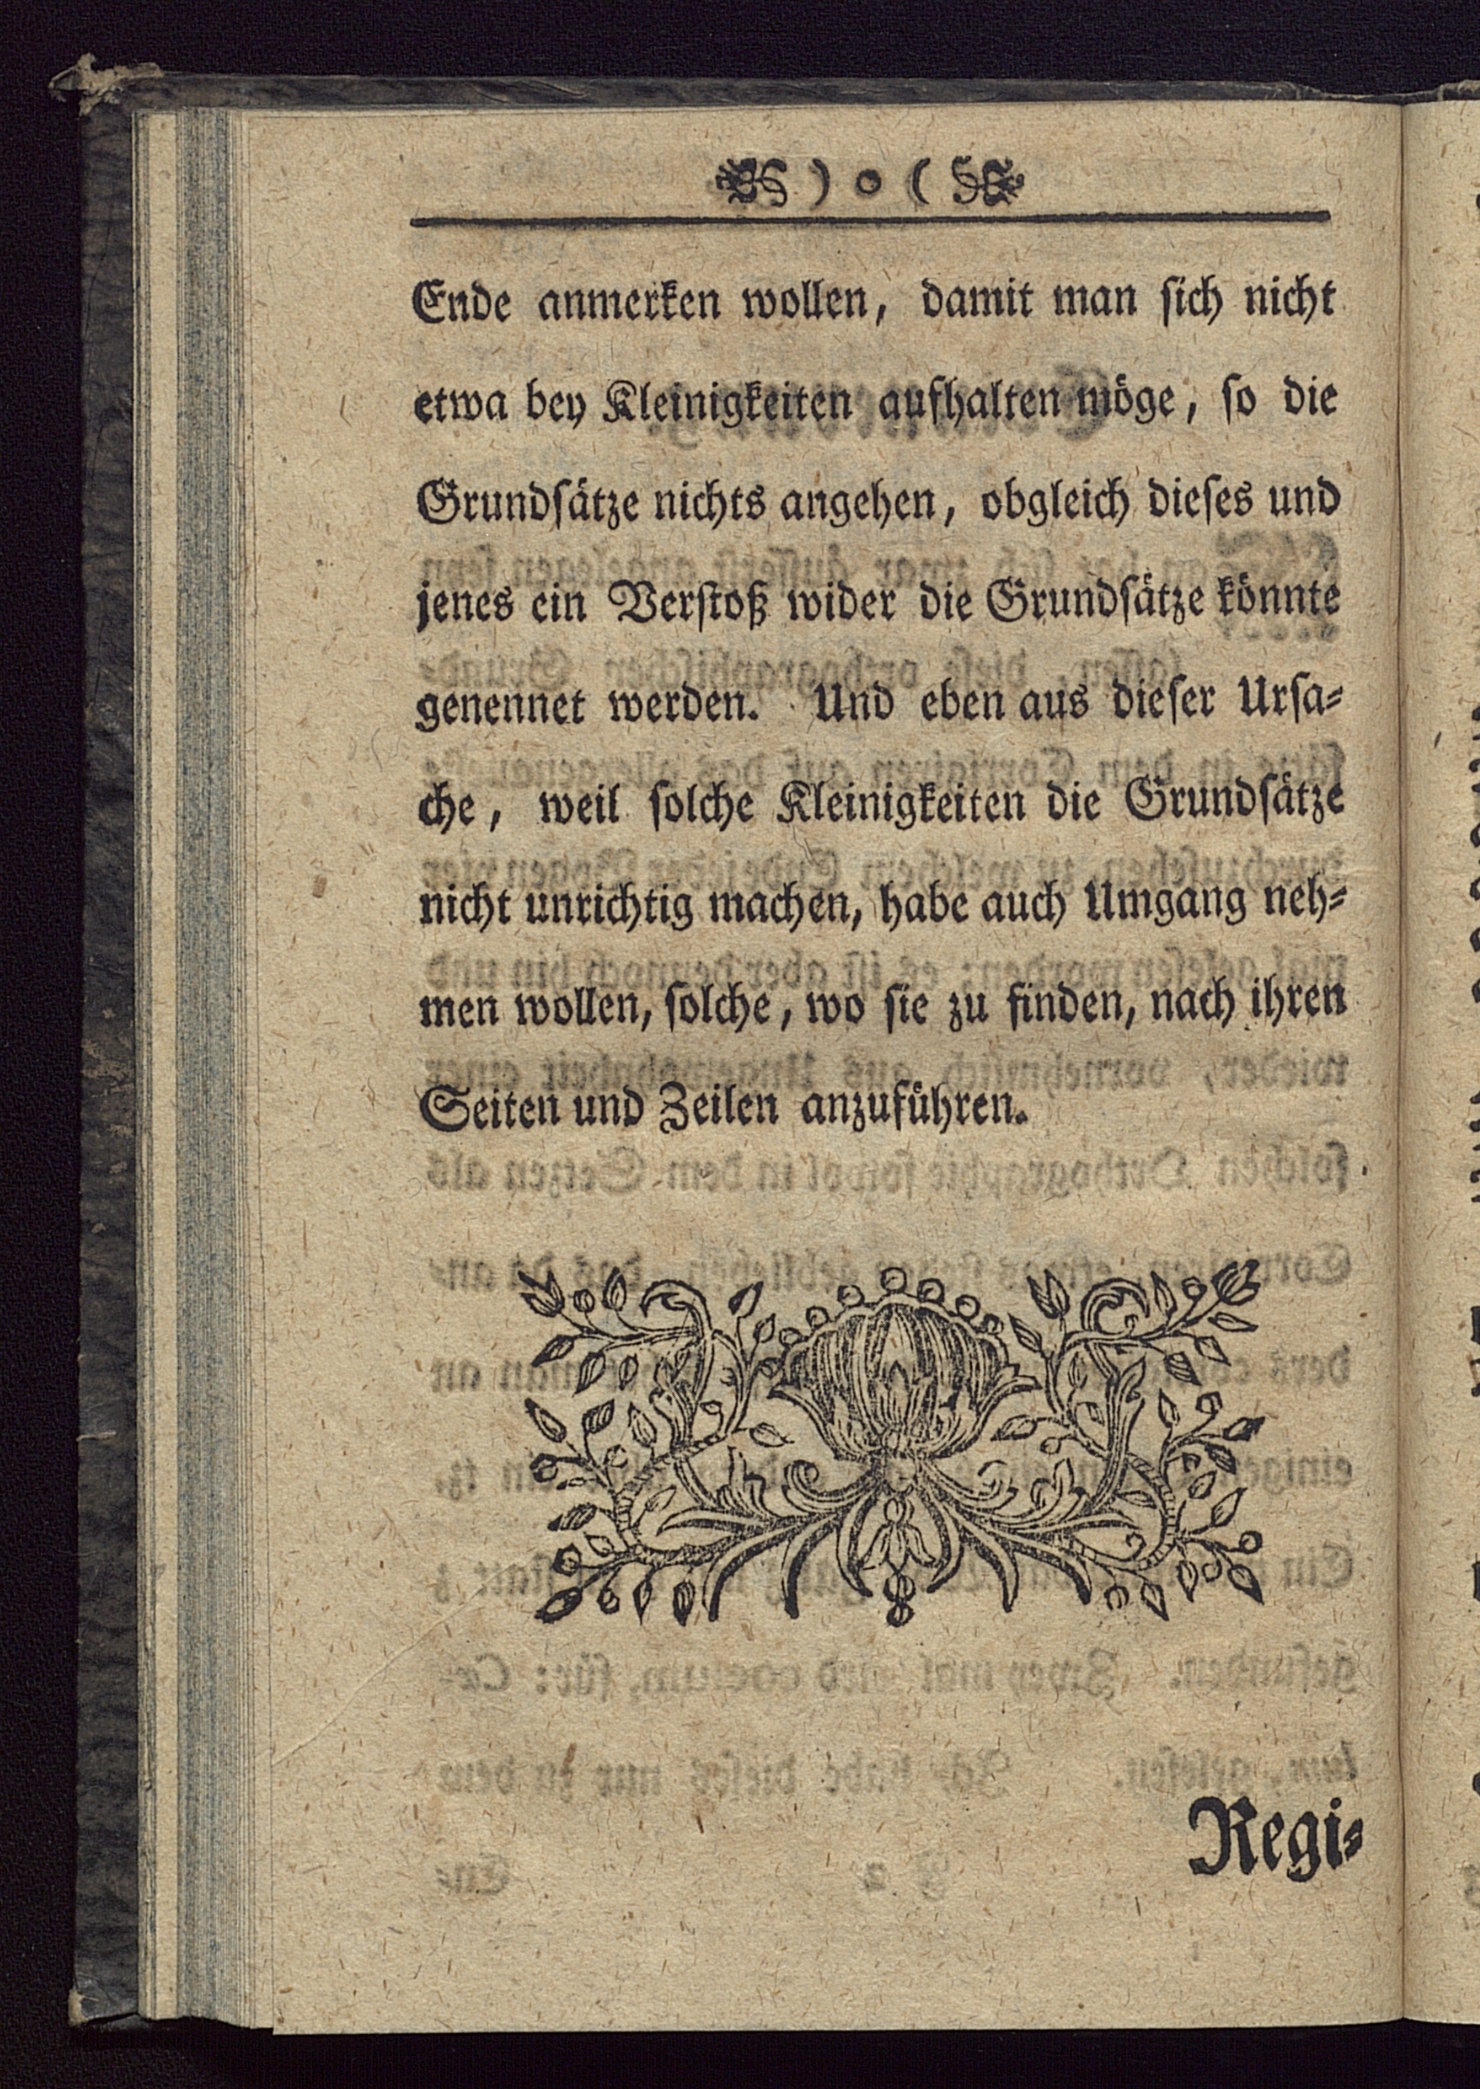 ) o (
Ende anmerken wollen, damit man sich nicht
etwa bey Kleinigkeiten aufhalten möge, so die
Grundsätze nichts angehen, obgleich dieses und
jenes ein Verstoß wider die Grundsätze könnte
genennet werden. Und eben aus dieser Ursa-
che, weil solche Kleinigkeiten die Grundsätze
nicht unrichtig machen, habe auch Umgang neh-
men wollen, solche, wo sie zu finden, nach ihren
Seiten und Zeilen anzuführen.
Regi-